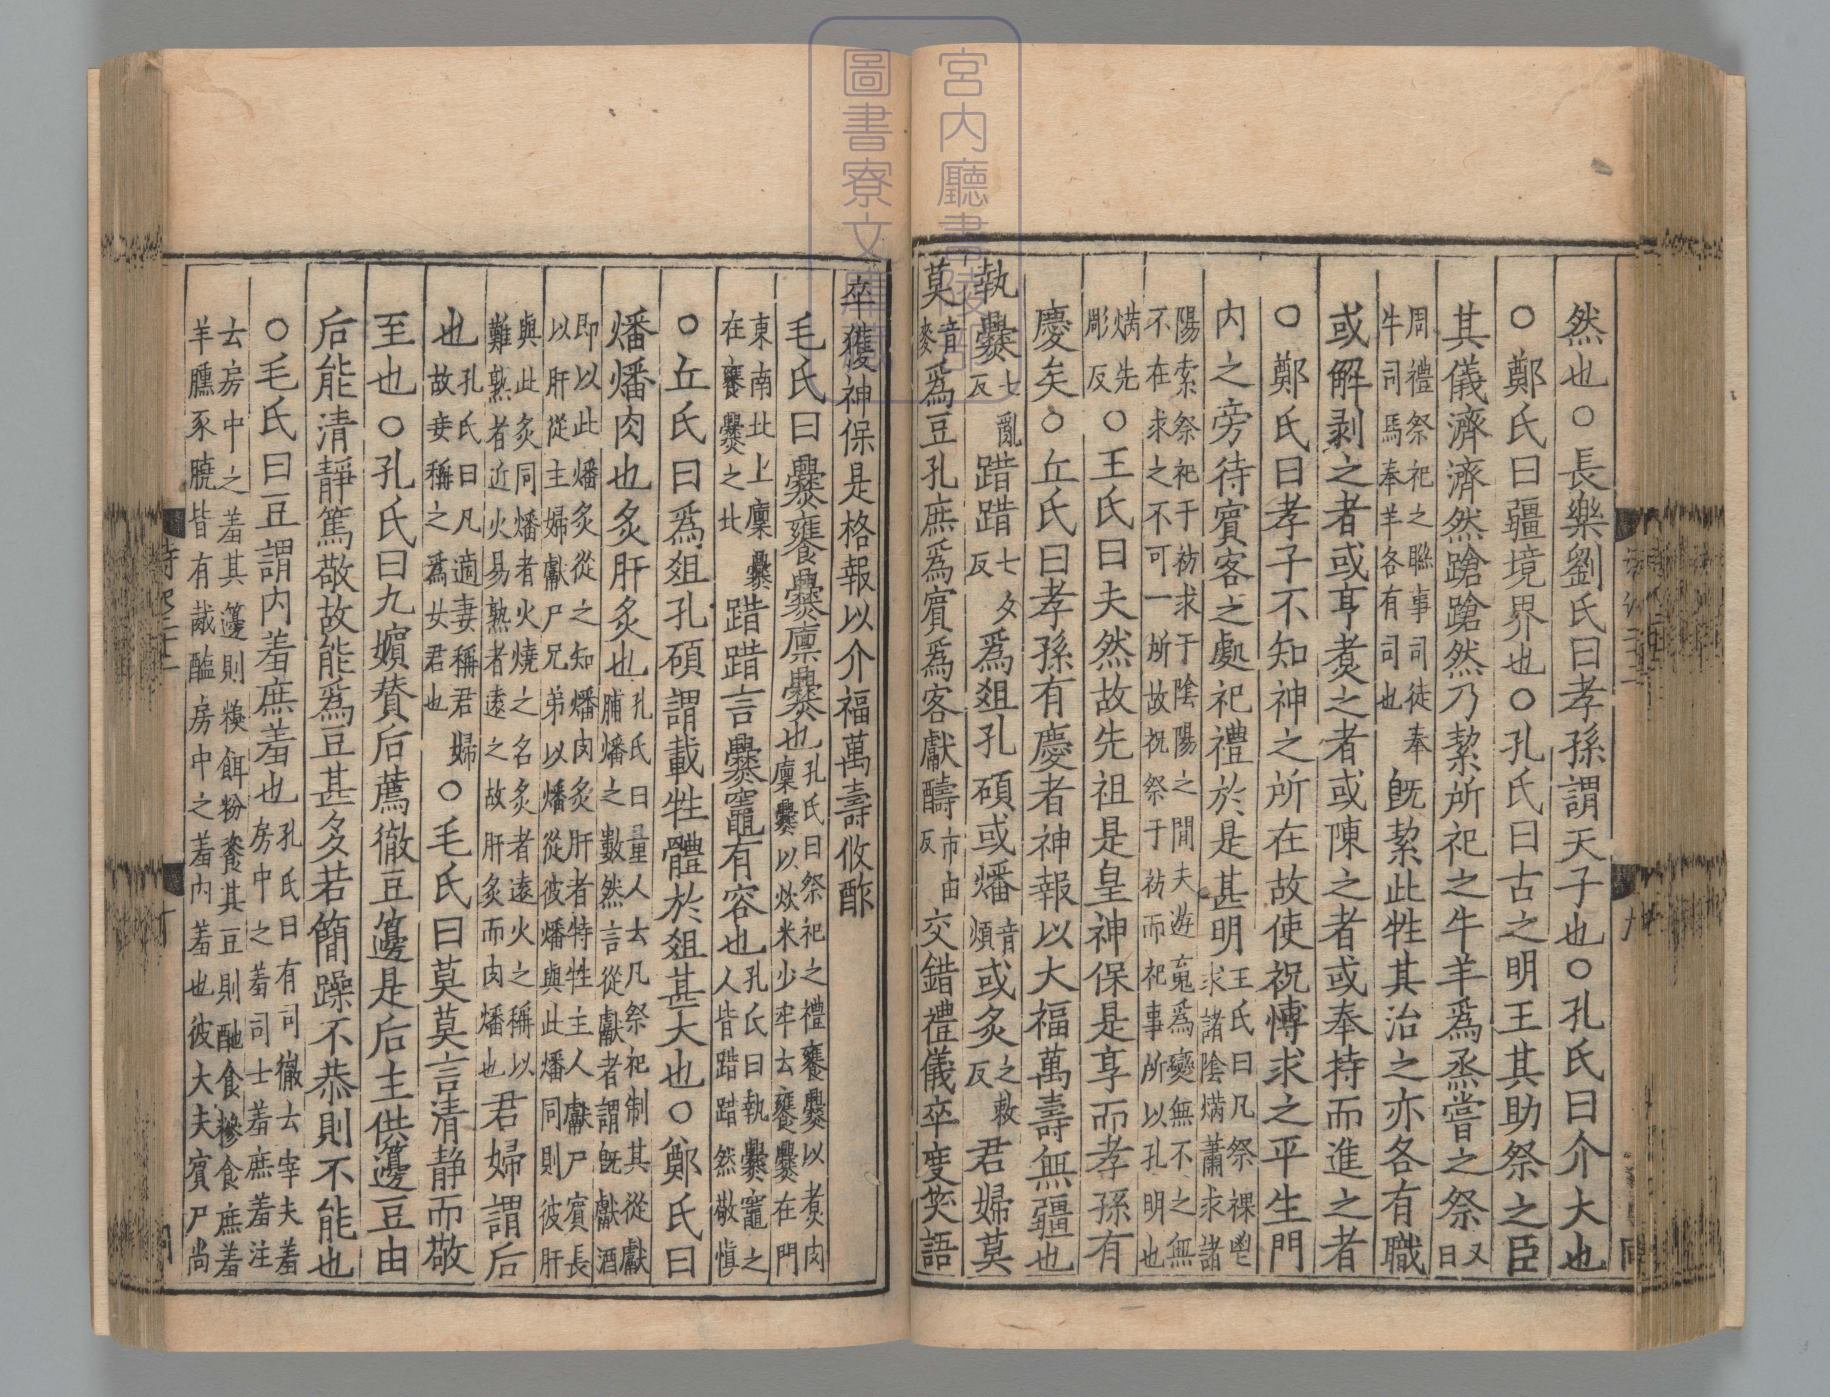 然也○長樂劉氏曰孝孫謂天子也○孔氏曰介大也
○鄭氏曰疆境界也○孔氏曰古之明王其助祭之臣
其儀濟濟然蹌蹌然乃絜所祀之牛羊爲烝嘗之祭又曰
周禮祭祀之聯事司徒奉牛司馬奉羊各有司也旣絜此牲其治之亦各有職
或解剥之者或亨煑之者或陳之者或奉持而進之者
○鄭氏曰孝子不知神之所在故使祝博求之平生門
内之旁待賓客之處祀禮於是甚明王氏曰凡祭祼鬯求諸陰焫蕭求諸
陽索祭祀于祊求于陰陽之間夫遊䰟爲變無不之無不在求之不可一所故祝祭于祊而祀事所以孔明也
焫先彫反○王氏曰夫然故先祖是皇神保是享而孝孫有
慶矣○丘氏曰孝孫有慶者神報以大福萬壽無疆也
執爨七亂反踖踖七夕反爲俎孔碩或燔音煩或炙之赦反君婦莫
莫音麥爲豆孔庶爲賓爲客獻醻市由反交錯禮儀卒度笑語
卒獲神保是格報以介福萬壽攸酢
毛氏曰爨饔爨廩爨也孔氏曰祭祀之禮饔爨以煑肉廩爨以炊米少牢云饔爨在門
東南北上廩爨在饔爨之北踖踖言爨竈有容也孔氏曰執爨竈之人皆踖踖然敬愼
○丘氏曰爲俎孔碩謂載牲體於俎甚大也○鄭氏曰
燔燔肉也炙肝炙也孔氏曰量人云凡祭祀制其從獻脯燔之數然言從獻者謂旣獻酒
即以此燔炙從之知燔肉炙肝者特牲主人獻尸賓長以肝從主婦獻尸兄弟以燔從彼燔與此燔同則彼肝
與此炙同燔者火燒之名炙者遠火之稱以難熟者近火易熟者遠之故肝炙而肉燔也君婦謂后
也孔氏曰凡適妻稱君婦故妾稱之爲女君也○毛氏曰莫莫言清静而敬
至也○孔氏曰九嬪賛后薦徹豆籩是后主供籩豆由
后能清靜篤敬故能爲豆甚多若簡躁不恭則不能也
○毛氏曰豆謂内羞庶羞也孔氏曰有司徹云宰夫羞房中之羞司士羞庶羞注
云房中之羞其籩則糗餌粉餈其豆則酏食糝食庶羞羊臐豕膮皆有胾醢房中之羞内羞也彼大夫賓尸尚
宮内廳書陵部
圖書寮文庫